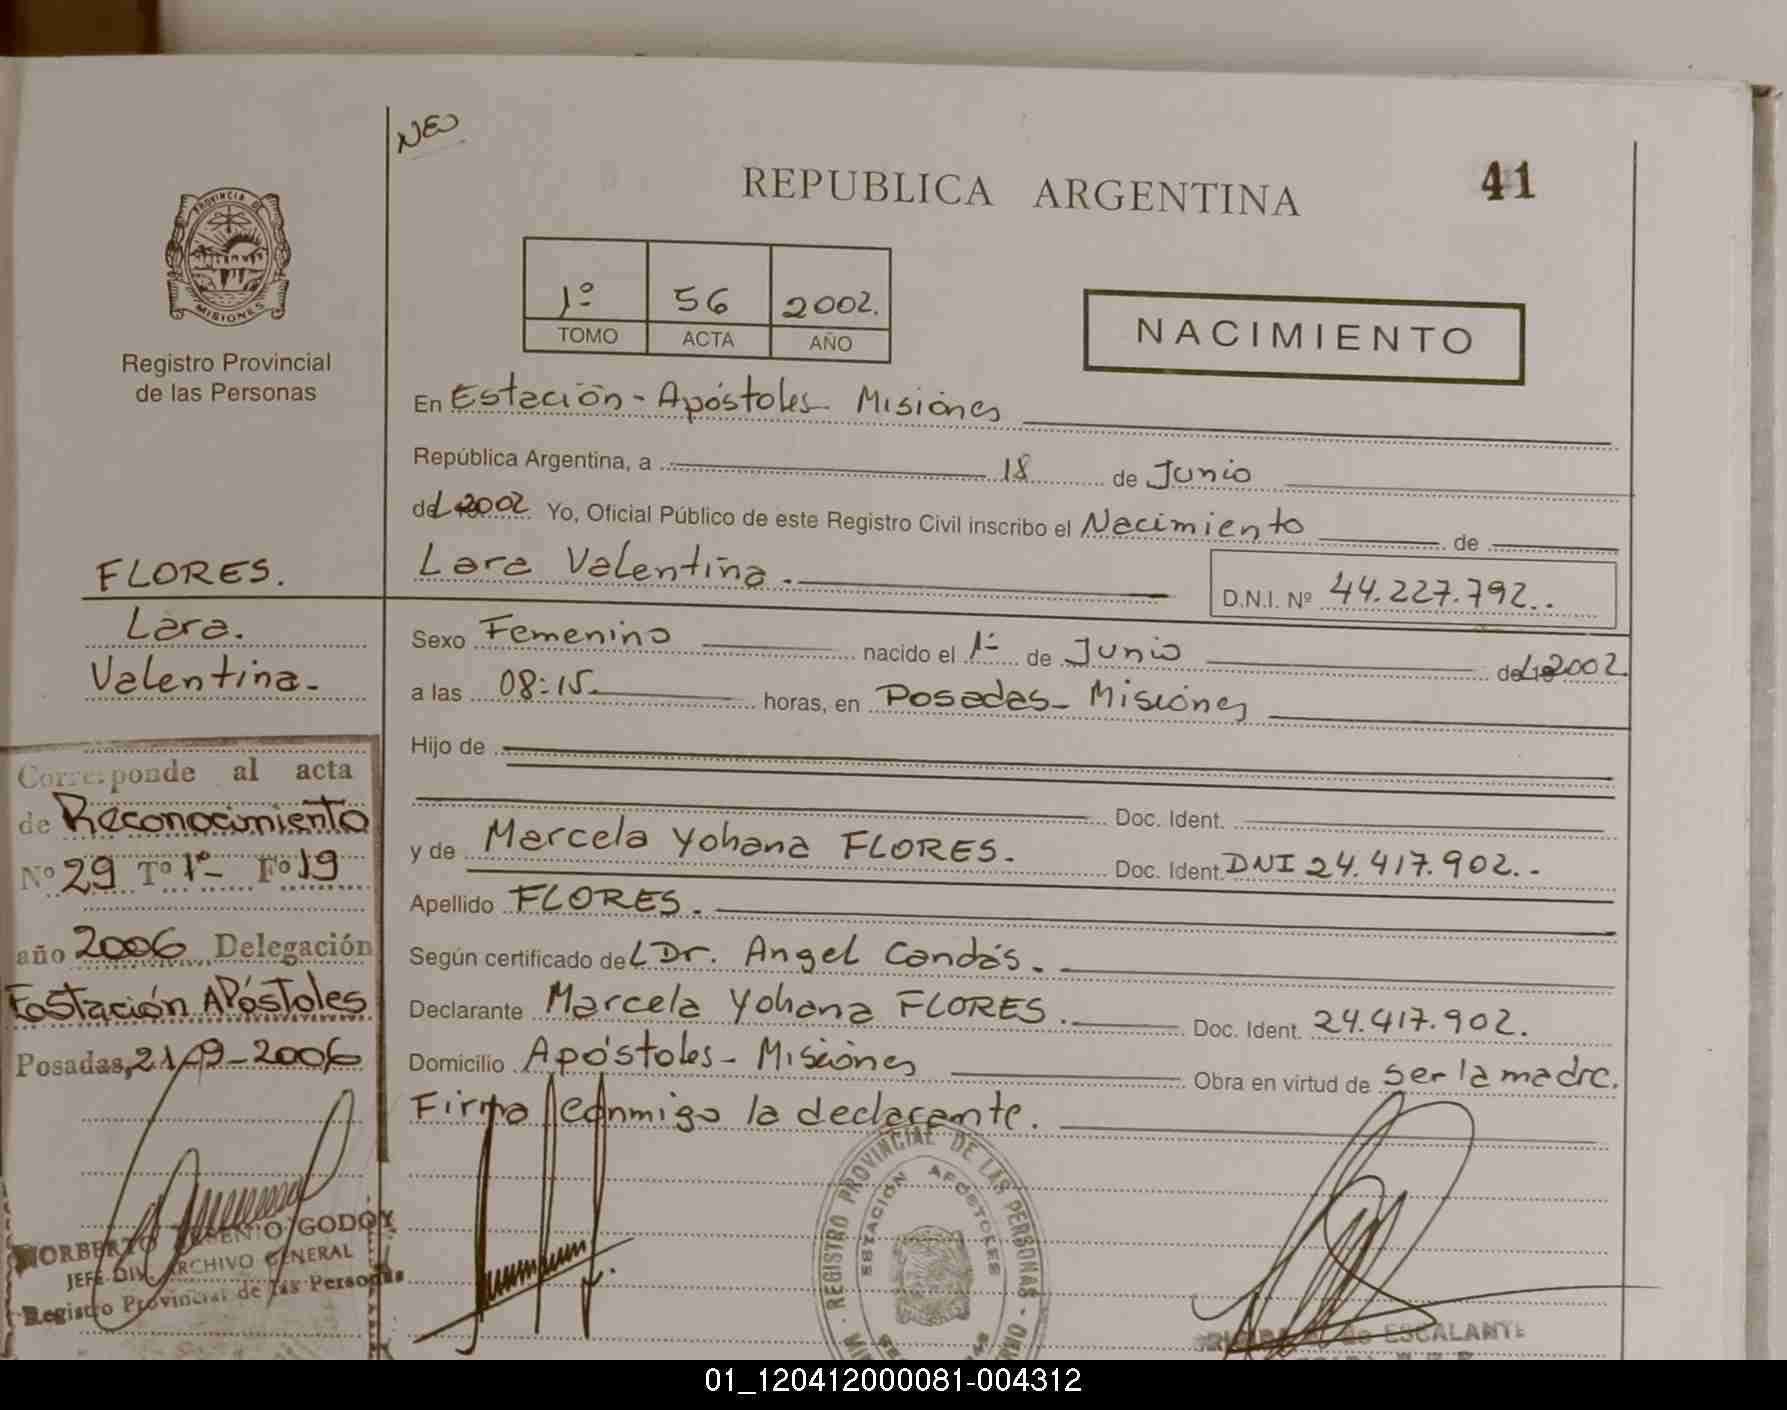 NEU
REPUBLICA ARGENTINA
41
PROVINCIA DE
MISIONES
Registro Provincial
de las Personas
1º 56 2002.
TOMO ACTA AÑO
NACIMIENTO
En Estación - Apóstoles - Misiones
República Argentina, a 18 de Junio
del 2002 Yo, Oficial Público de este Registro Civil inscribo el Nacimiento de
Lara Valentina.-
D.N.I. Nº 44.227.792..
FLORES.
Lara.
Valentina-
Sexo Femenino nacido el 1º de Junio del 2002
a las 08:15. horas, en Posadas- Misiones
Hijo de
Doc. Ident.
y de Marcela Yohana FLORES. Doc. Ident. DNI 24.417.902..-
Apellido FLORES.
Según certificado del Dr. Angel Candás.
Declarante Marcela Yohana FLORES. Doc. Ident. 24.417.902.
Domicilio Apóstoles- Misiones Obra en virtud de ser la madre.
Firma conmigo la declarante.
Corresponde al acta
de Reconocimiento
Nº 29 Tº 1º Fº 19
año 2006 Delegación
Estación APóstoles
Posadas, 21-9-2006
NORBERTO GODOY
JEFE DIV. ARCHIVO GENERAL
Registro Provincial de las Personas
REGISTRO PROVINCIAL DE LAS PERSONAS
ESTACION APOSTOLES
de ESCALANTE
01_120412000081-004312